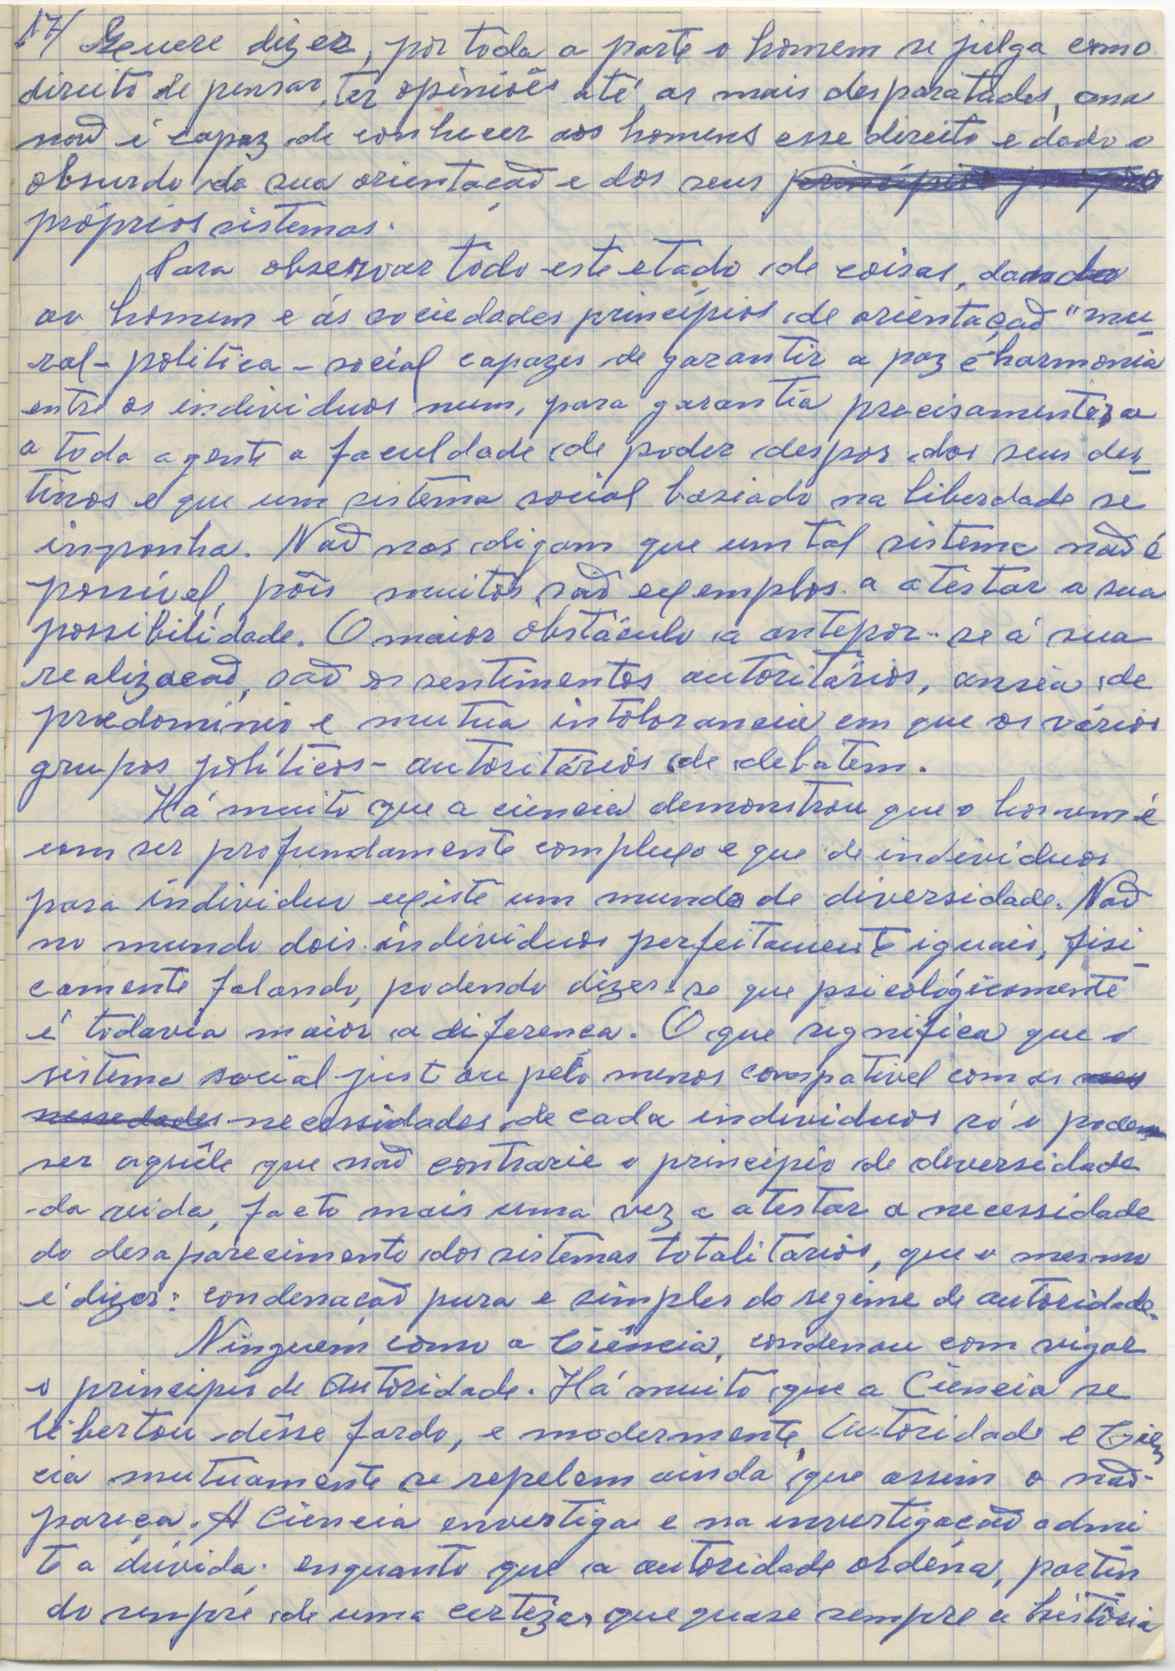 17/ Quere dizer, por toda a parte o homem se julga como
direito de pensar, ter opiniões até as mais desparatadas, ma
naõ é capaz de conhecer aos homens esse direito e dado o
absurdo da sua orientaçaõ e dos seus
próprios sistemas.
Para observar todo este etado de coisas, dando
ao homem e ás sociedades princípios de orientaçaõ "mu
ral-politica-social capazes de garantir a paz e harmonia
entre os individuos num, para garantia precisamente, a
a toda a gente a faculdade de poder despor dos seus des-
tinos e que um sistema social basiado na liberdade se
imponha. Naõ nos digam que um tal sistema naõ é
possivel, pois muitos saõ exemplos a atestar a sua
possibilidade. O maior obstáculo a antepor-se á sua
realizacaõ, saõ os sentimentos autoritários, anseia de
predominio e mutua intolorancia em que os vários
grupos políticos-autoritários de debatem.
Há muito que a ciencia demonstrou que o homem é
um ser profundamente complexo e que de individuos
para individuo existe um mundo de diversidade. Naõ
no mundo dois individuos perfeitamente iguais, fisi-
camente falando, podendo dizer-se que psicológicamente
é todavia maior a diferenca. O que significa que o
sistema social just ou pelo menos compativel com as
necessidades de cada individuos só o podem
ser aquêle que naõ contrarie o principio de diversidade
da vida, facto mais uma vez a atestar a necessidade
do desaparecimento dos sistemas totalitarios, que o mesmo
é dizer: condenacaõ pura e simples do regime de autoridade.
Ninguem como a Ciência, condenou com vigor
o principio de Autoridade. Há muito que a Ciencia se
libertou dêsse fardo, e modermente, Autoridade e Cien
cia mutuamente se repelem ainda que assim o naõ
pareça. A Ciencia envestiga e na investigaçaõ admi
te a dúvida; enquanto que a autoridade ordena, partin
do sempre de uma certeza, que quase sempre a história